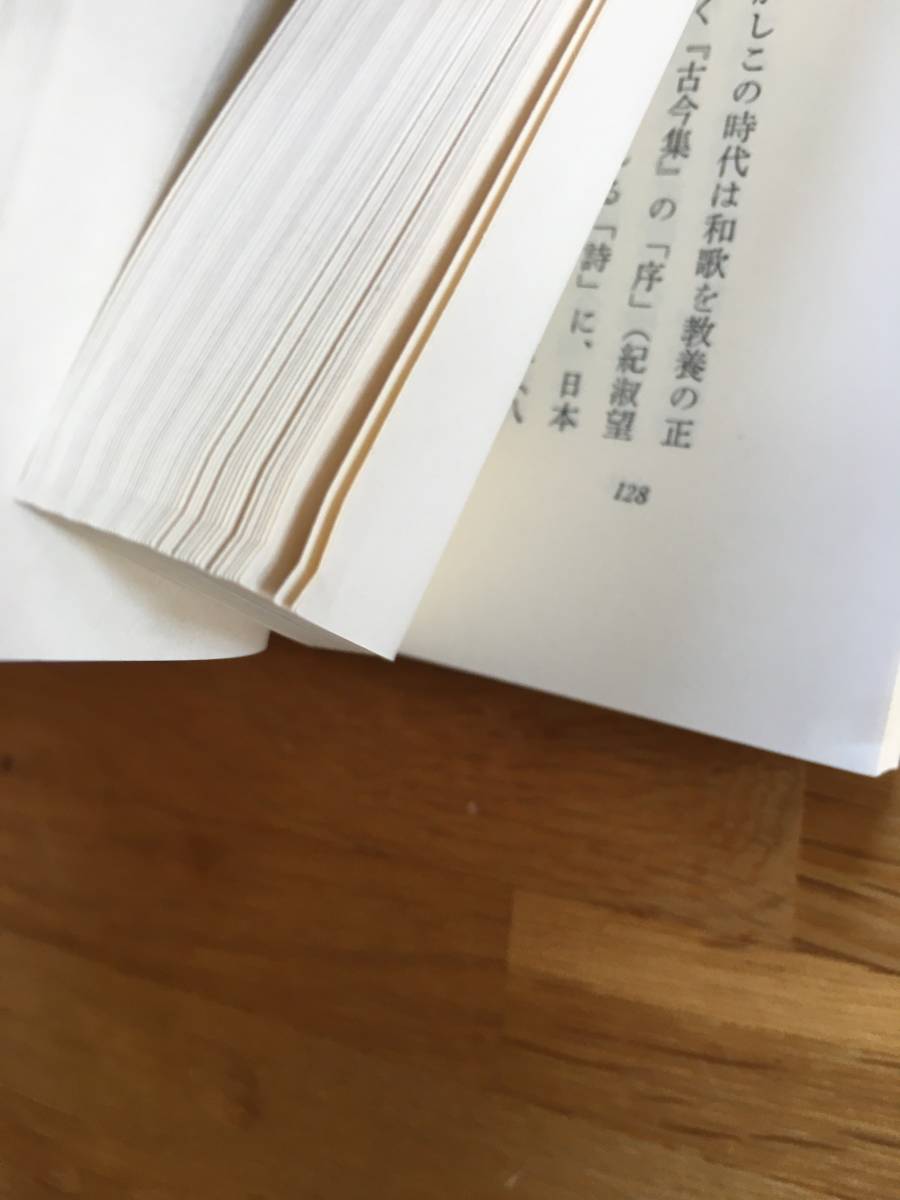 しこの時代は和歌を教養の正
く『古今集』の「序」（紀淑望
る「詩」に、日本
128